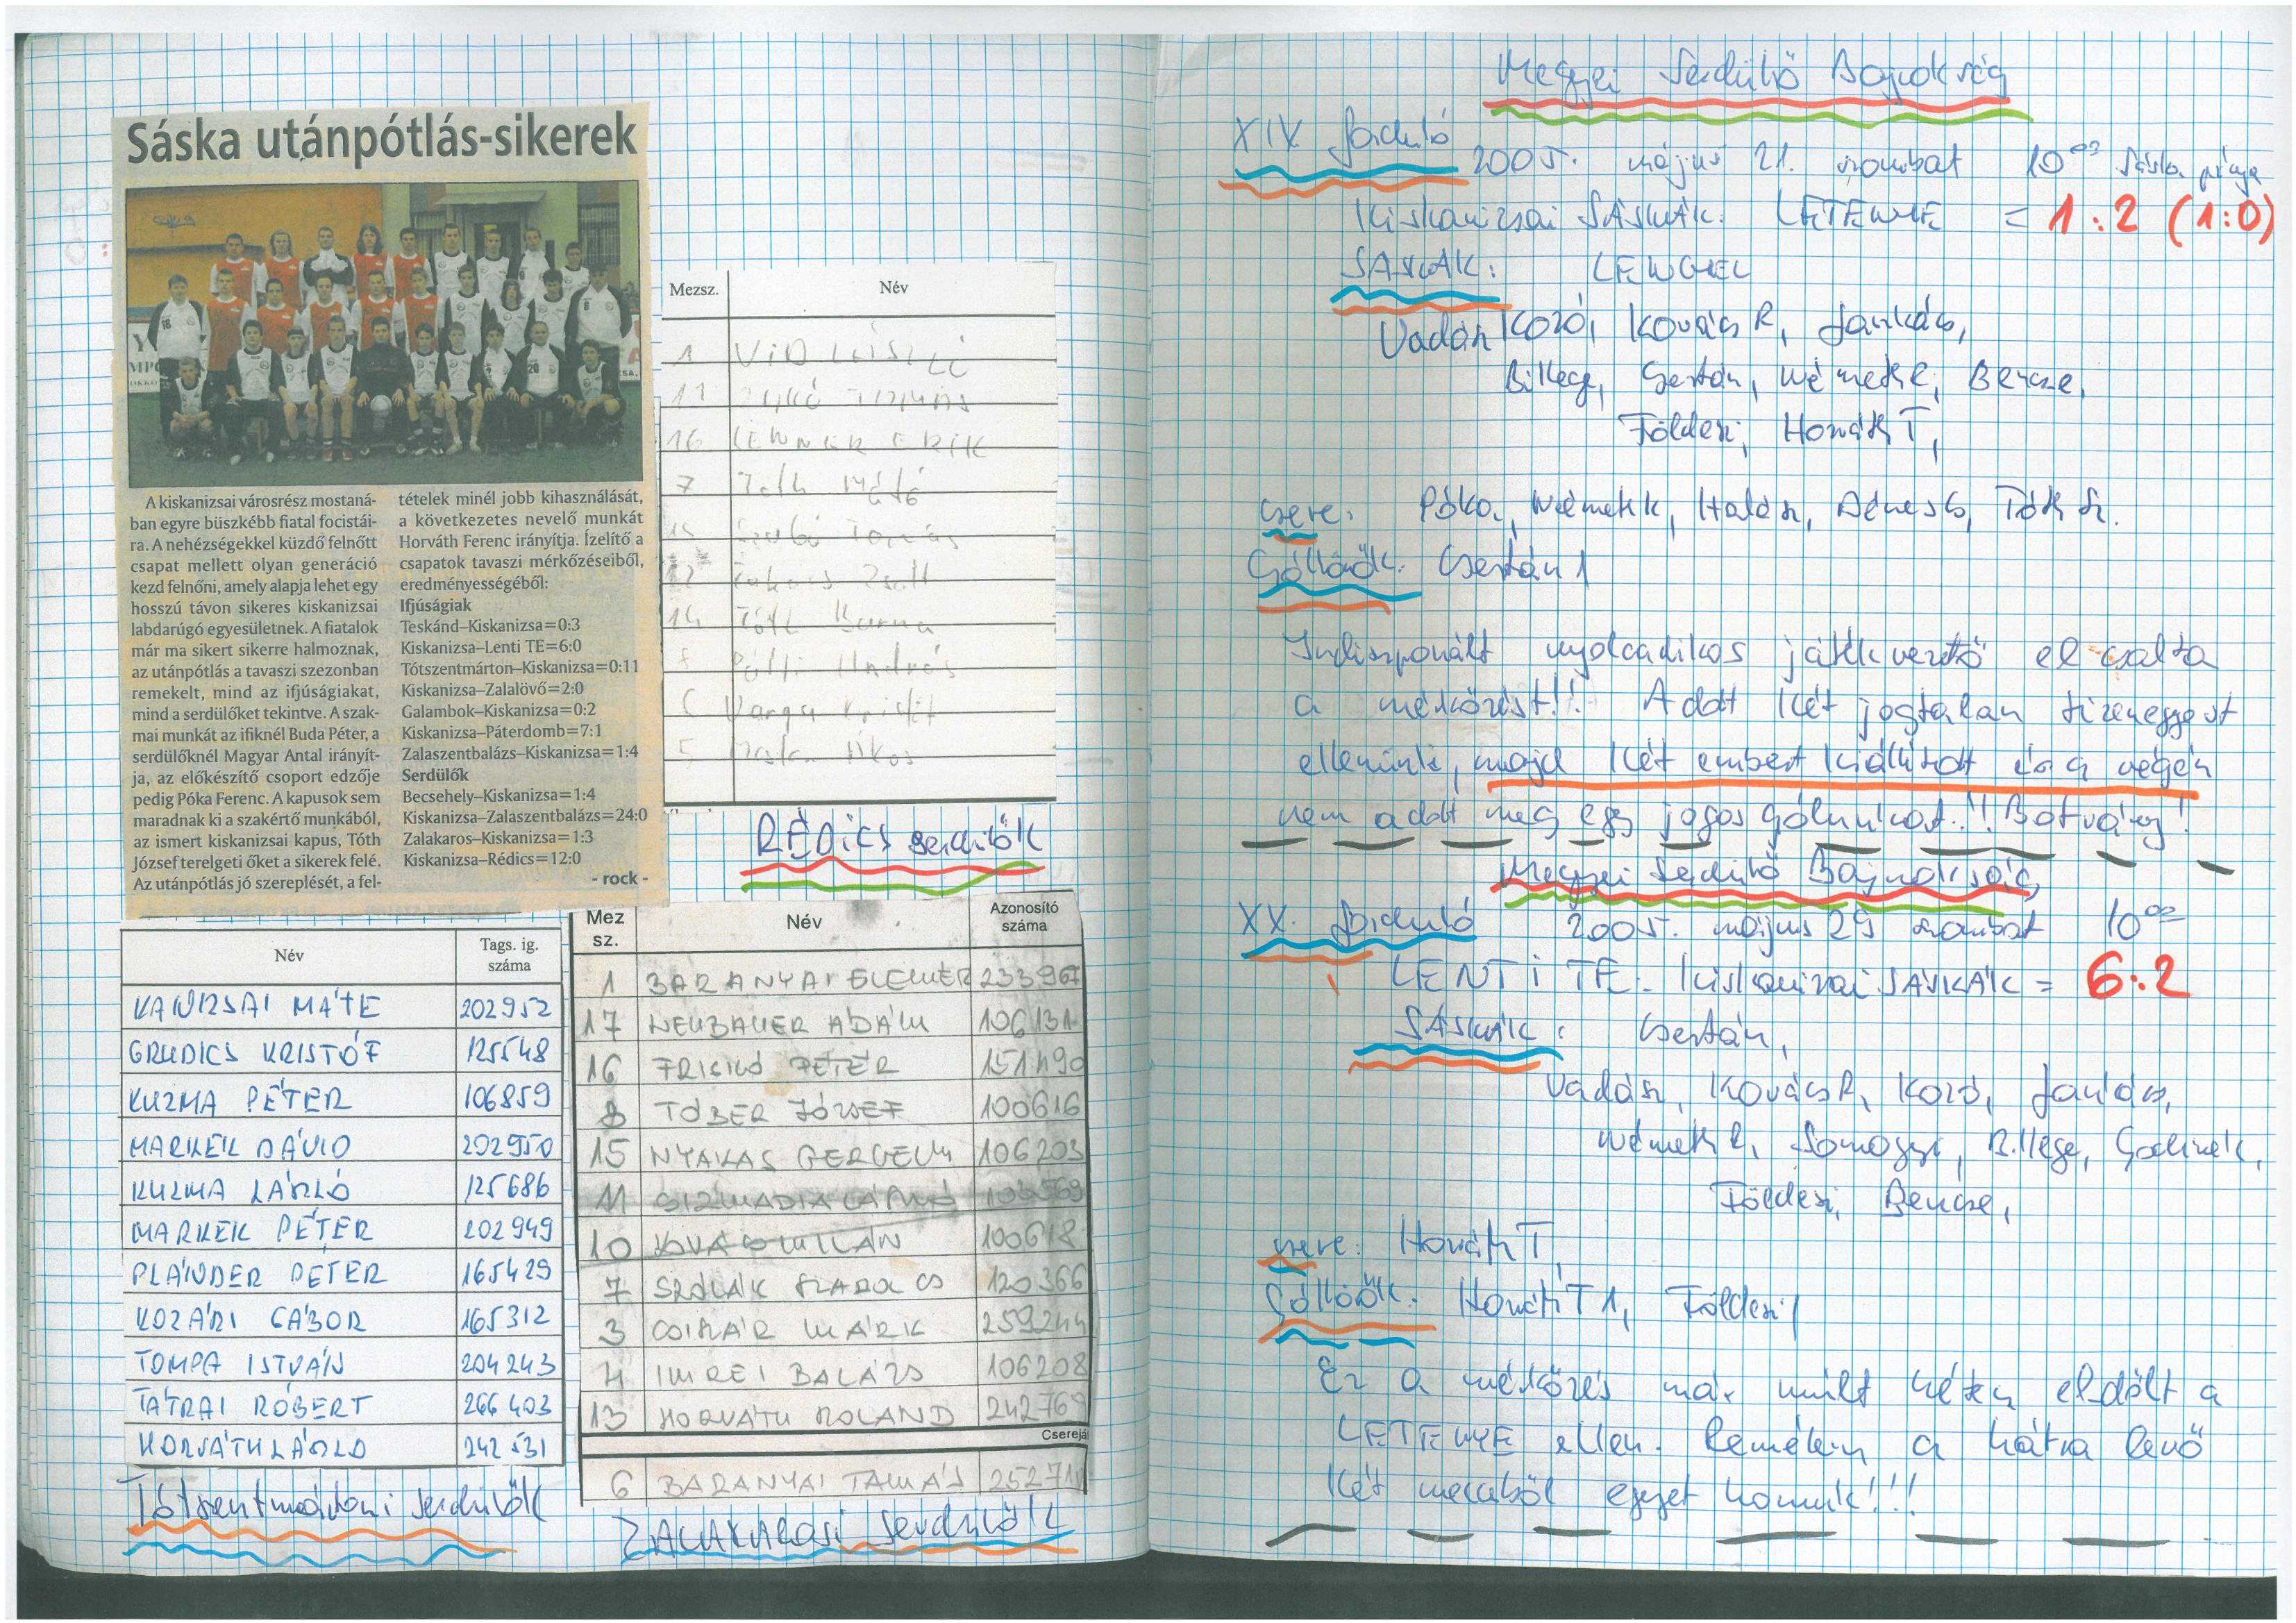 Sáska utánpótlás-sikerek
A kiskanizsai városrész mostaná-
ban egyre büszkébb fiatal focistái-
ra. A nehézségekkel küzdő felnőtt
csapat mellett olyan generáció
kezd felnőni, amely alapja lehet egy
hosszú távon sikeres kiskanizsai
labdarúgó egyesületnek. A fiatalok
már ma sikert sikerre halmoznak,
az utánpótlás a tavaszi szezonban
remekelt, mind az ifjúságiakat,
mind a serdülőket tekintve. A szak-
mai munkát az ifiknél Buda Péter, a
serdülőknél Magyar Antal irányít-
ja, az előkészítő csoport edzője
pedig Póka Ferenc. A kapusok sem
maradnak ki a szakértő munkából,
az ismert kiskanizsai kapus, Tóth
József terelgeti őket a sikerek felé.
Az utánpótlás jó szereplését, a fel-
tételek minél jobb kihasználását,
a következetes nevelő munkát
Horváth Ferenc irányítja. Ízelítő a
csapatok tavaszi mérkőzéseiből,
eredményességéből:
Ifjúságiak
Teskánd–Kiskanizsa=0:3
Kiskanizsa–Lenti TE=6:0
Tótszentmárton–Kiskanizsa=0:11
Kiskanizsa–Zalalövő=2:0
Galambok–Kiskanizsa=0:2
Kiskanizsa–Páterdomb=7:1
Zalaszentbalázs–Kiskanizsa=1:4
Serdülők
Becsehely–Kiskanizsa=1:4
Kiskanizsa–Zalaszentbalázs=24:0
Zalakaros–Kiskanizsa=1:3
Kiskanizsa–Rédics=12:0
- rock -
Mezsz. Név
1 VID LÁSZLÓ
16 LEHNER ERIK
7 Tóth Máté
14 Tóth Barna
Varga Kristóf
RÉDICS serdülők
Név Tags. ig. száma
KANIZSAI MÁTÉ 202952
GRUDICS KRISTÓF 125548
KUZMA PÉTER 106859
MARKEK DÁVID 202950
KUZMA LÁSZLÓ 125686
MARKEK PÉTER 202949
PLÁNDER PÉTER 165429
KOZÁRI GÁBOR 165312
TOMPA ISTVÁN 204243
TÁTRAI RÓBERT 266403
HORVÁTH LÁSZLÓ 242531
Tótszentmártoni serdülők
Mez sz. Név Azonosító száma
1 BARANYAI ELEMÉR 233967
17 NEUBAUER ÁDÁM 106131
16 FRISKÓ PÉTER 151490
8 TÓBER JÓZSEF 100616
15 NYAKAS GERGELY 106203
11
10 KOVÁCS MILÁN 100618
7 120366
3 CSISZÁR MÁRK 259244
4 IMREI BALÁZS 106208
13 HORVÁTH ROLAND 242769
Cserejá
6 BARANYAI TAMÁS 252710
ZALAKAROSI serdülők
Megyei Serdülő Bajnokság
XIX forduló 2005. május 21. szombat 10 00 Sáska pálya
Kiskanizsai SÁSKÁK. LETENYE = 1:2 (1:0)
SÁSKÁK: LENGYEL
Vadász Kozó, Kovács R, Jankács,
Billege, Csertán, Németh R, Bencze,
Földesi, Horváth T,
csere: Póka, Németh K, Halász, Dénes G, Tóth Sz.
Góllövők: Csertán 1
Indiszponált nyolcadikos játékvezető elcsalta
a mérkőzést!!! Adott két jogtalan tizenegyest
ellenünk, majd két embert kiállított és a végén
nem adott meg egy jogos gólunkat..!! Botrány!
Megyei Serdülő Bajnokság
XX. forduló 2005. május 29 szombat 10 00
LENTI TE. Kiskanizsai SÁSKÁK = 6:2
SÁSKÁK: Csertán,
Vadász, Kovács R, Kozó, Jankács,
Németh R, Somogyi, Billege, Godinek,
Földesi, Bencze,
csere: Horváth T,
Góllövők: Horváth T 1, Földesi 1
Ez a mérkőzés már múlt héten eldőlt a
LETENYE ellen. Remélem a hátra levő
két meccsből egyet hozunk!!!